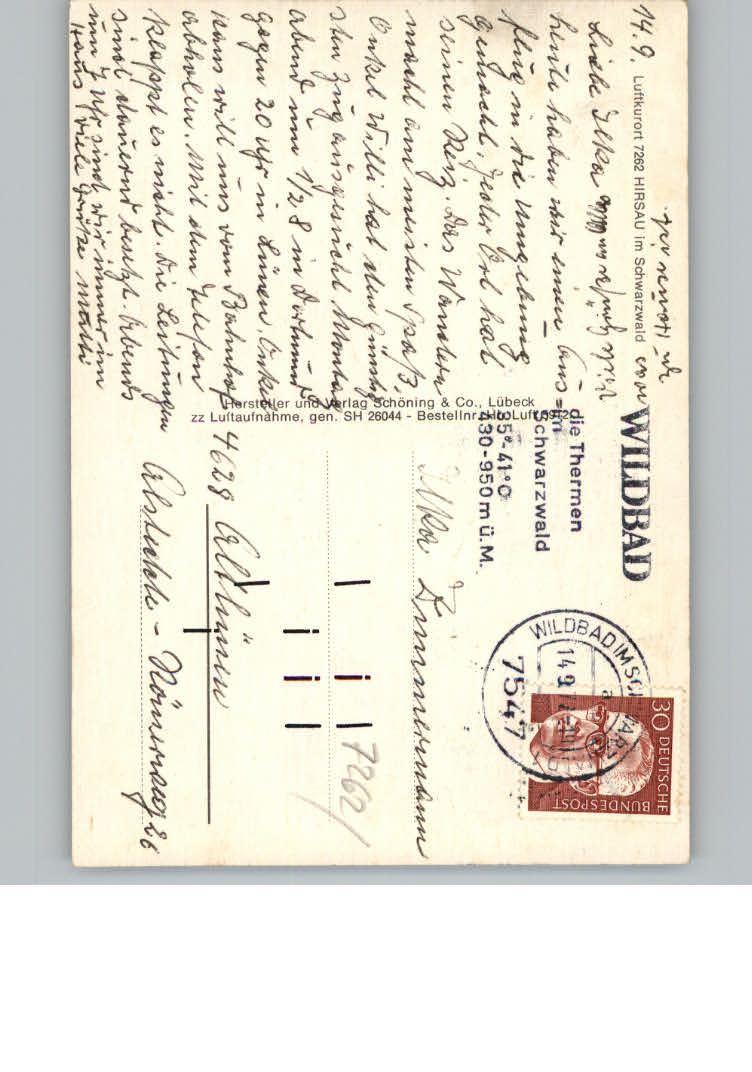 14.9.
Luftkurort 7262 HIRSAU im Schwarzwald
Liebe Ilka
heute haben wir einen Aus=
flug in die Umgebung
gemacht. Jeder Ort hat
seinen Reiz. Das Wandern
macht am meisten Spaß.
Onkel Willi hat den günstig
sten Zug ausgesucht Montag
abend um 1/2 8 in Dortmund
gegen 20 Uhr in Lünen. Onkel
Hans will uns vom Bahnhof
abholen. Mit dem Telefon
klappt es nicht. Die Leitungen
sind dauernd besetzt. Abends
um 7 Uhr sind wir immer im
Haus Viele Grüße Mutti
Hersteller und Verlag Schöning & Co., Lübeck
zz Luftaufnahme, gen. SH 26044 - Bestellnr. Luft
WILDBAD
im
Schwarzwald
die Thermen
35°-41°C
430-950 m ü. M.
WILDBAD IM SCHWARZWALD
14.9.
7547
30 DEUTSCHE
BUNDESPOST
Ilka Zimmermann
4628 Altlünen
Alstedde - Römerweg 26
7262